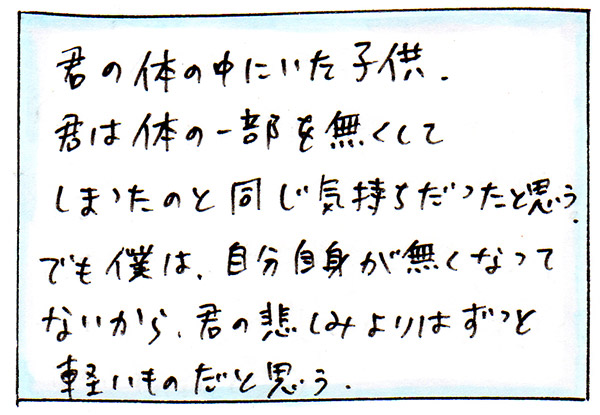 君の体の中にいた子供.
君は体の一部を無くして
しまったのと同じ気持ちだったと思う.
でも僕は、自分自身が無くなって
ないから、君の悲しみよりはずっと
軽いものだと思う.